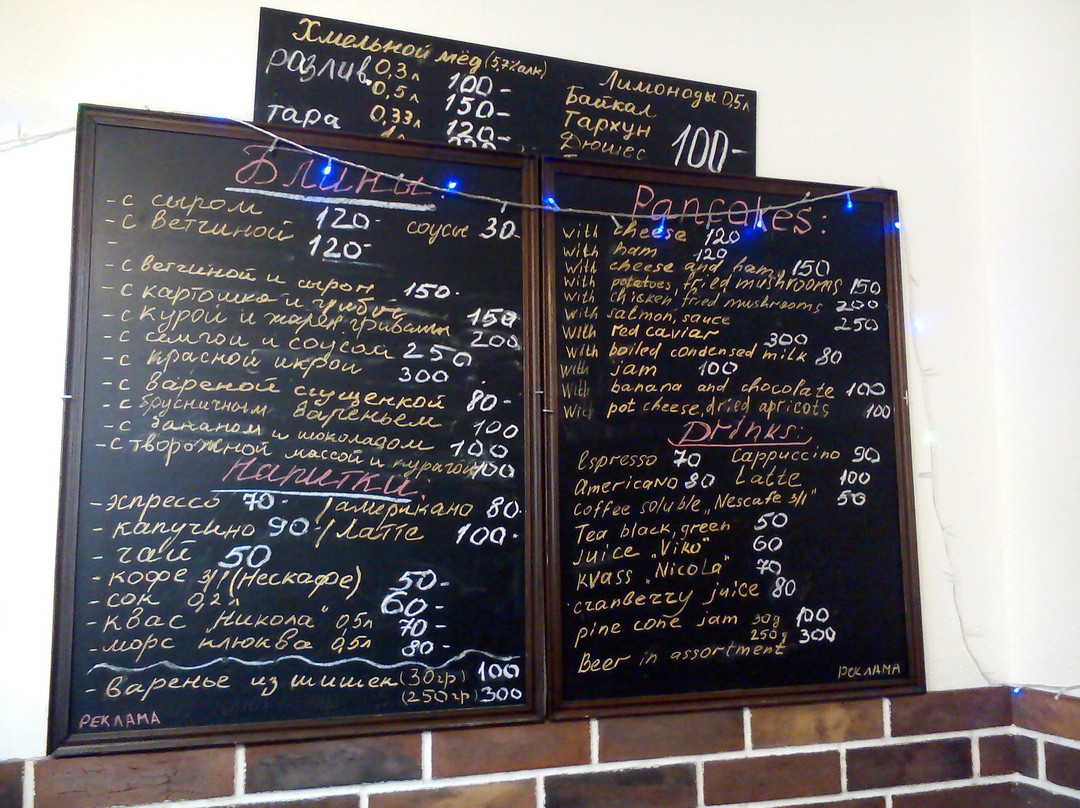 Хмельной мёд (5,7% алк)
розлив 0,3л 100-
0,5л 150-
тара 0,33л 120-
1л
Лимонады 0,5л
Байкал
Тархун 100-
Дюшес
Блины:
-с сыром 120-
соусы 30-
-с ветчиной 120-
-
-с ветчиной и сыром 150-
-с картошка и грибы 150
-с курой и жарен грибами 200
-с семгой и соусом 250
-с красной икрой 300
-с вареной сгущенкой 80-
-с брусничным вареньем 100
-с бананом и шоколадом 100
-с творожной массой и курагой 100
Напитки:
-эспрессо 70- /американо 80-
-капучино 90-/Латте 100-
-чай 50
-кофе 3/1 (Нескафе) 50-
-сок 0,2л 60-
-квас "Никола" 0,5л 70-
-морс клюква 0,5л 80-
-варенье из шишек (30гр) 100
(250гр) 300
РЕКЛАМА
Pancakes:
with cheese 120
with ham 120
with cheese and ham 150
with potatoes, fried mushrooms 150
with chicken, fried mushrooms 200
with salmon, sauce 250
with red caviar 300
with boiled condensed milk 80
with jam 100
with banana and chocolate 100
with pot cheese, dried apricots 100
Drinks:
Espresso 70 Cappuccino 90
Americano 80 Latte 100
coffee soluble „Nescafe 3/1" 50
Tea black, green 50
juice „Viko" 60
kvass „Nicola" 70
cranberry juice 80
pine cone jam 30g 100
250g 300
Beer in assortment
РЕКЛАМА